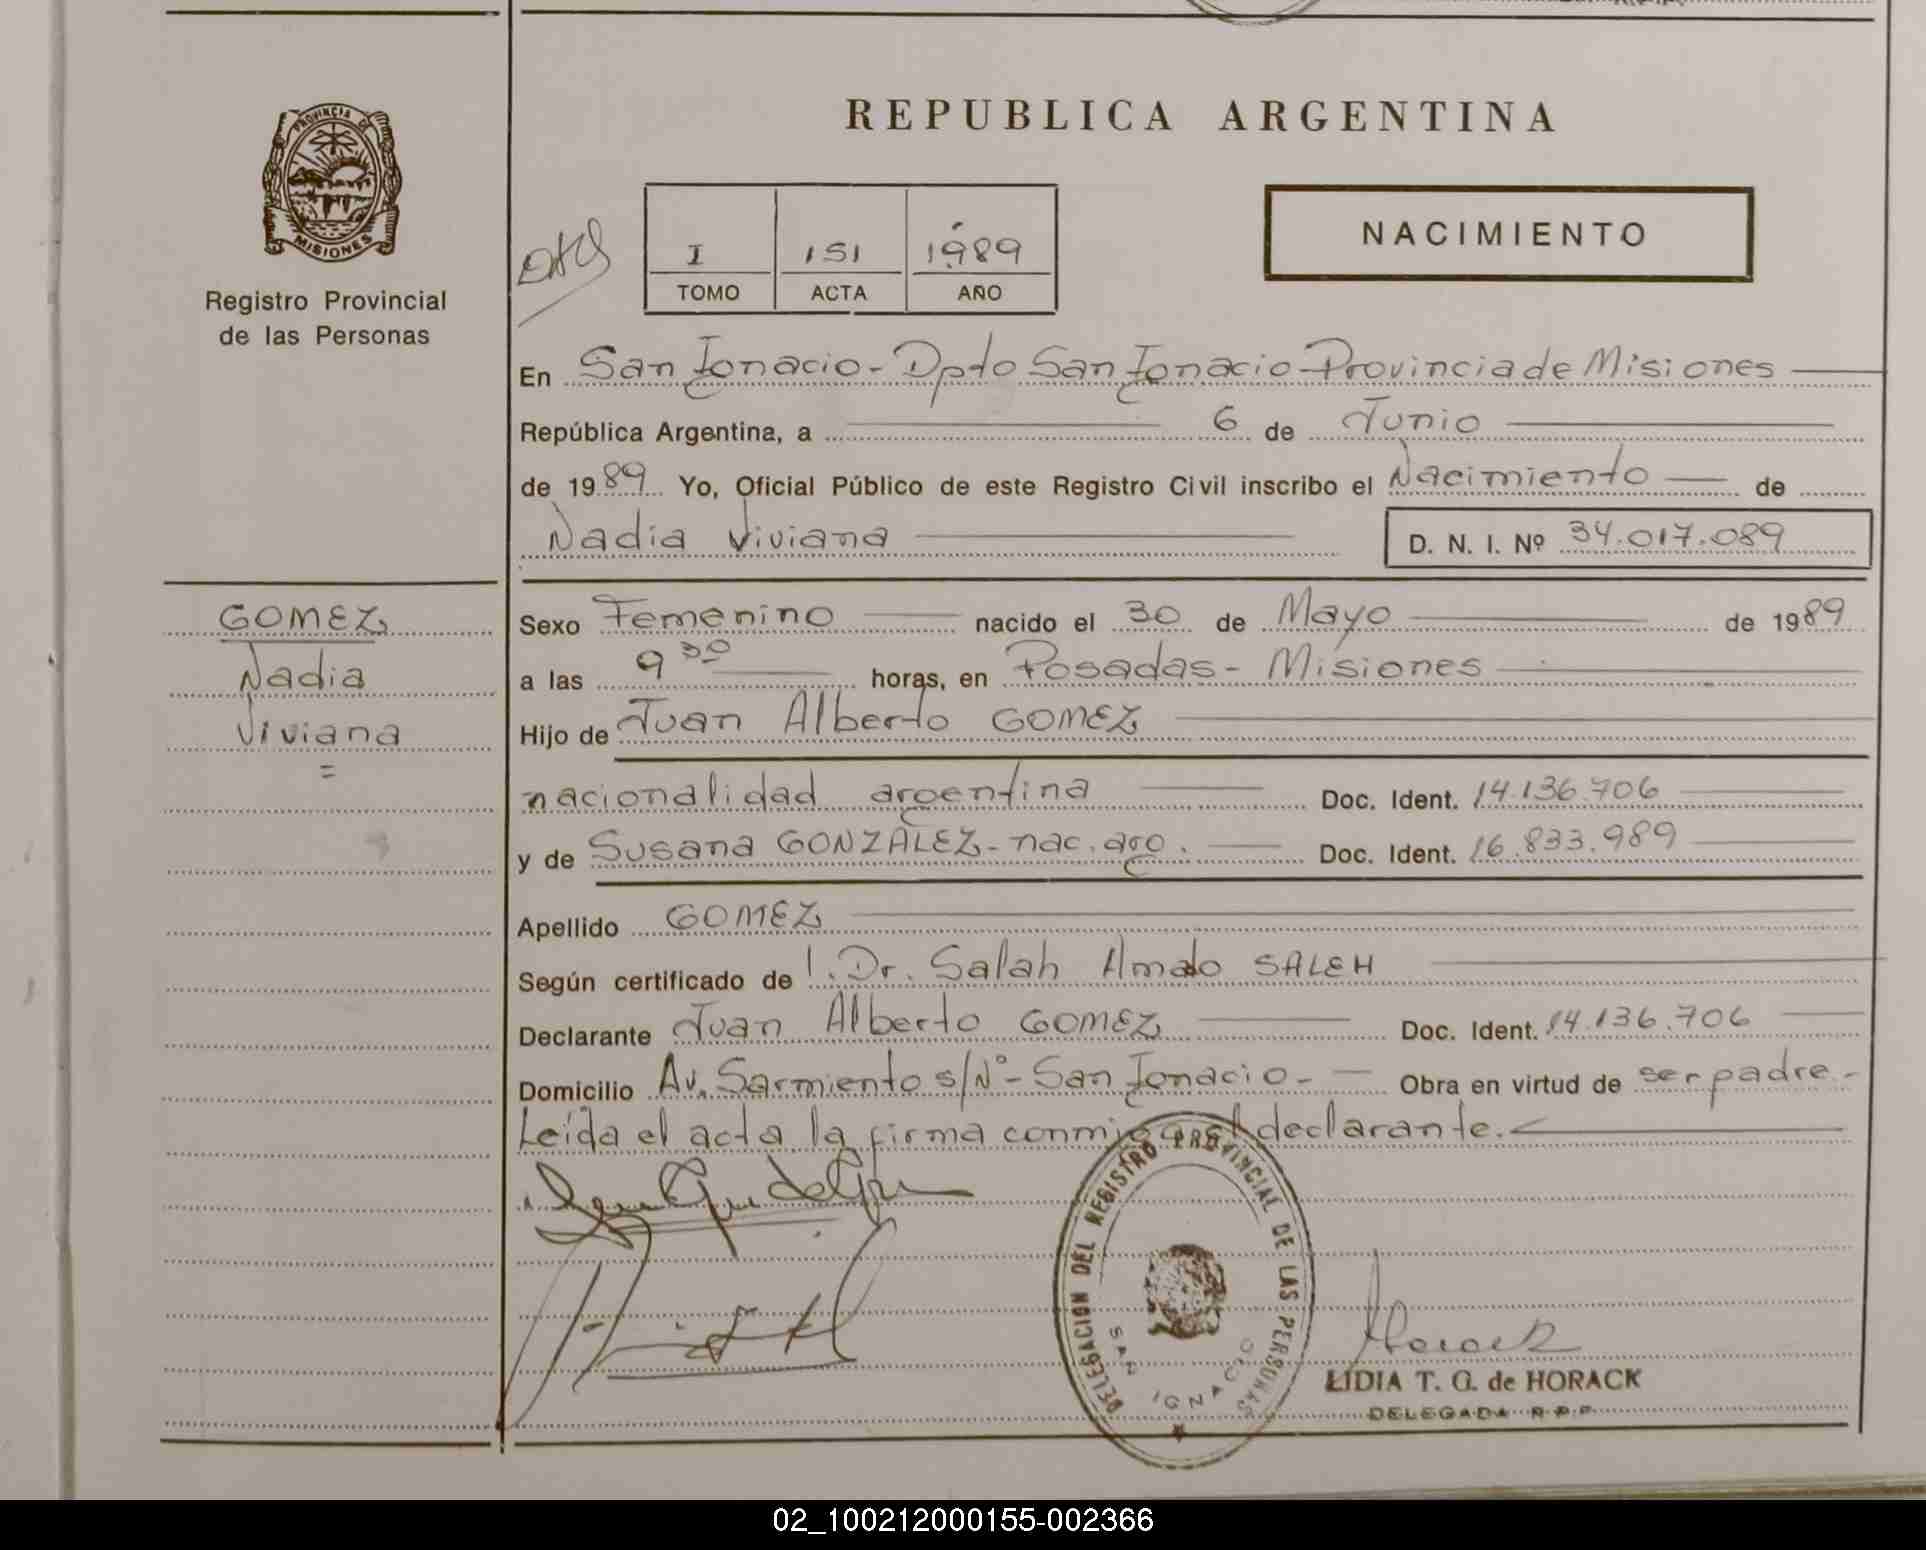 PROVINCIA DE
MISIONES
Registro Provincial
de las Personas
REPUBLICA ARGENTINA
I 151 1989
TOMO ACTA AÑO
NACIMIENTO
En San Ignacio - Dpto San Ignacio - Provincia de Misiones
República Argentina, a 6 de Junio
de 1989 Yo, Oficial Público de este Registro Civil inscribo el Nacimiento de
Nadia Viviana D. N. I. Nº 34.017.089
GOMEZ
Nadia
Viviana
=
Sexo Femenino nacido el 30 de Mayo de 1989
a las 9 30 horas, en Posadas - Misiones
Hijo de Juan Alberto GOMEZ
nacionalidad argentina Doc. Ident. 14.136.706
y de Susana GONZALEZ - nac. arg. Doc. Ident. 16.833.989
Apellido GOMEZ
Según certificado de l. Dr. Salah Amado SALEH
Declarante Juan Alberto GOMEZ Doc. Ident. 14.136.706
Domicilio Av. Sarmiento s/Nº - San Ignacio - Obra en virtud de ser padre.-
Leída el acta la firma conmigo el declarante.
DELEGACION DEL REGISTRO PROVINCIAL DE LAS PERSONAS
SAN IGNACIO
Horack
LIDIA T. G. de HORACK
DELEGADA R.P.P.
02_100212000155-002366